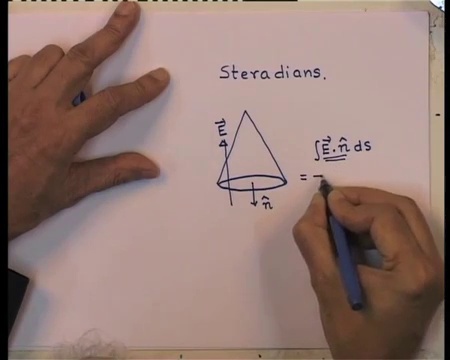 Steradians.
E⃗
∫ E⃗ . n̂ ds
= -
n̂